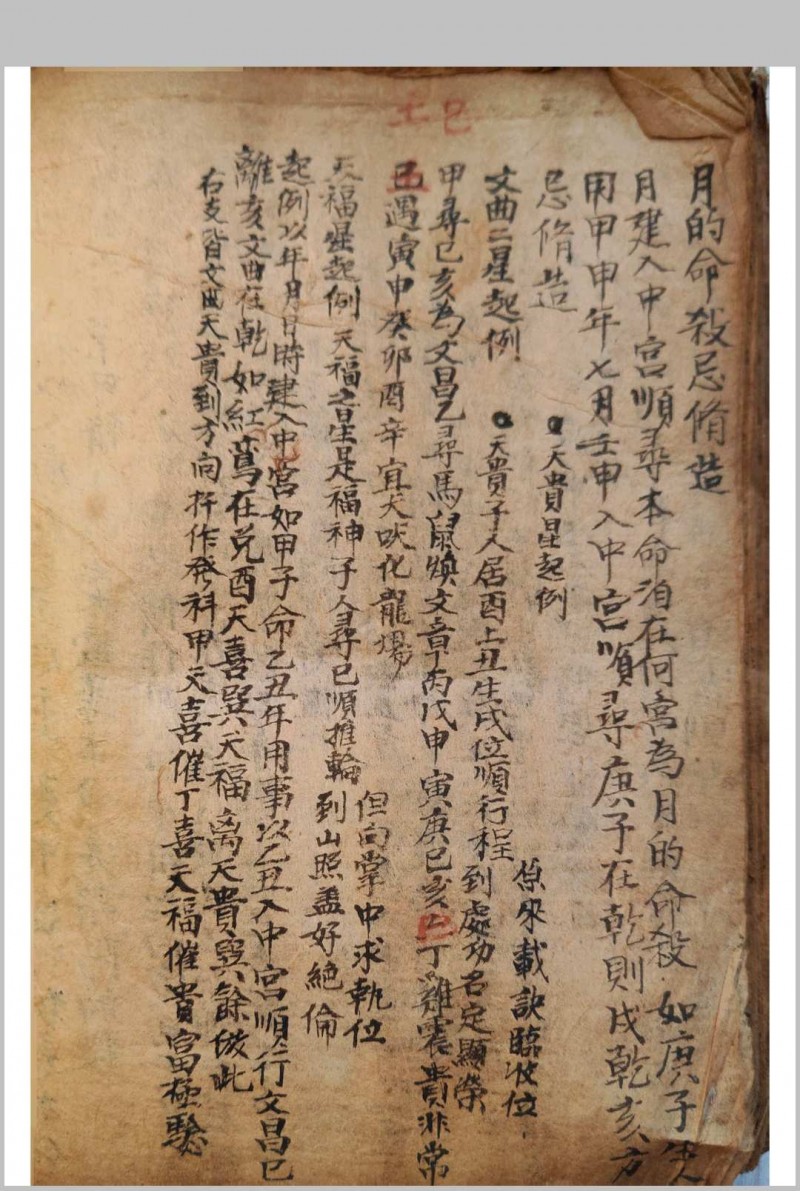 土 巳
月的命殺忌脩造
月建入中宮順尋本命泊在何宮為月的命殺如庚子生人
用甲申年七月壬申入中宮順尋庚子在乾則戌乾亥方
忌脩造
天貴星起例
文曲二星起例
天貴子人居酉上丑生戌位順行程
原來載訣臨收位
到處功名定顯榮
甲尋巳亥為文昌乙尋馬鼠煥文章丙戊申寅庚巳亥丁雞震貴非常
己遇寅申癸卯酉辛宜天吠化龍場
天福星起例
天福之星是福神子人尋巳順推輪
但向掌中求執位
到山照盖好絕倫
起例以年月日時建入中宮如甲子命乙丑年用事以乙丑入中宮順行文昌巳
離亥文曲在乾如紅鸞在兌酉天喜巽天福离天貴巽餘倣此
右支皆文曲天貴到方向扦作發科甲天喜催丁喜天福催貴富極驗